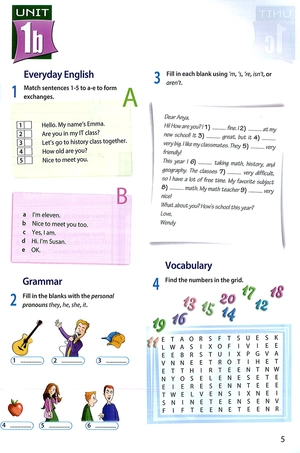 UNIT
1b
Everyday English
1 Match sentences 1-5 to a-e to form
exchanges.
A
1 Hello. My name's Emma.
2 Are you in my IT class?
3 Let's go to history class together.
4 How old are you?
5 Nice to meet you.
B
a I'm eleven.
b Nice to meet you too.
c Yes, I am.
d Hi. I'm Susan.
e OK.
Grammar
2 Fill in the blanks with the personal
pronouns they, he, she, it.
1
2
3
4
5
6
3 Fill in each blank using 'm, 's, 're, isn't, or
aren't.
Dear Anya,
Hi! How are you? I 1) fine. I 2) at my
new school! It 3) great, but it 4)
very big. I like my classmates. They 5) very
friendly!
This year I 6) taking math, history, and
geography. The classes 7) very difficult,
so I have a lot of free time. My favorite subject
8) math. My math teacher 9) very
nice!
What about you? How's school this year?
Love,
Wendy
Vocabulary
4 Find the numbers in the grid.
19 16 13 15 20 17 12 18
14
11
5